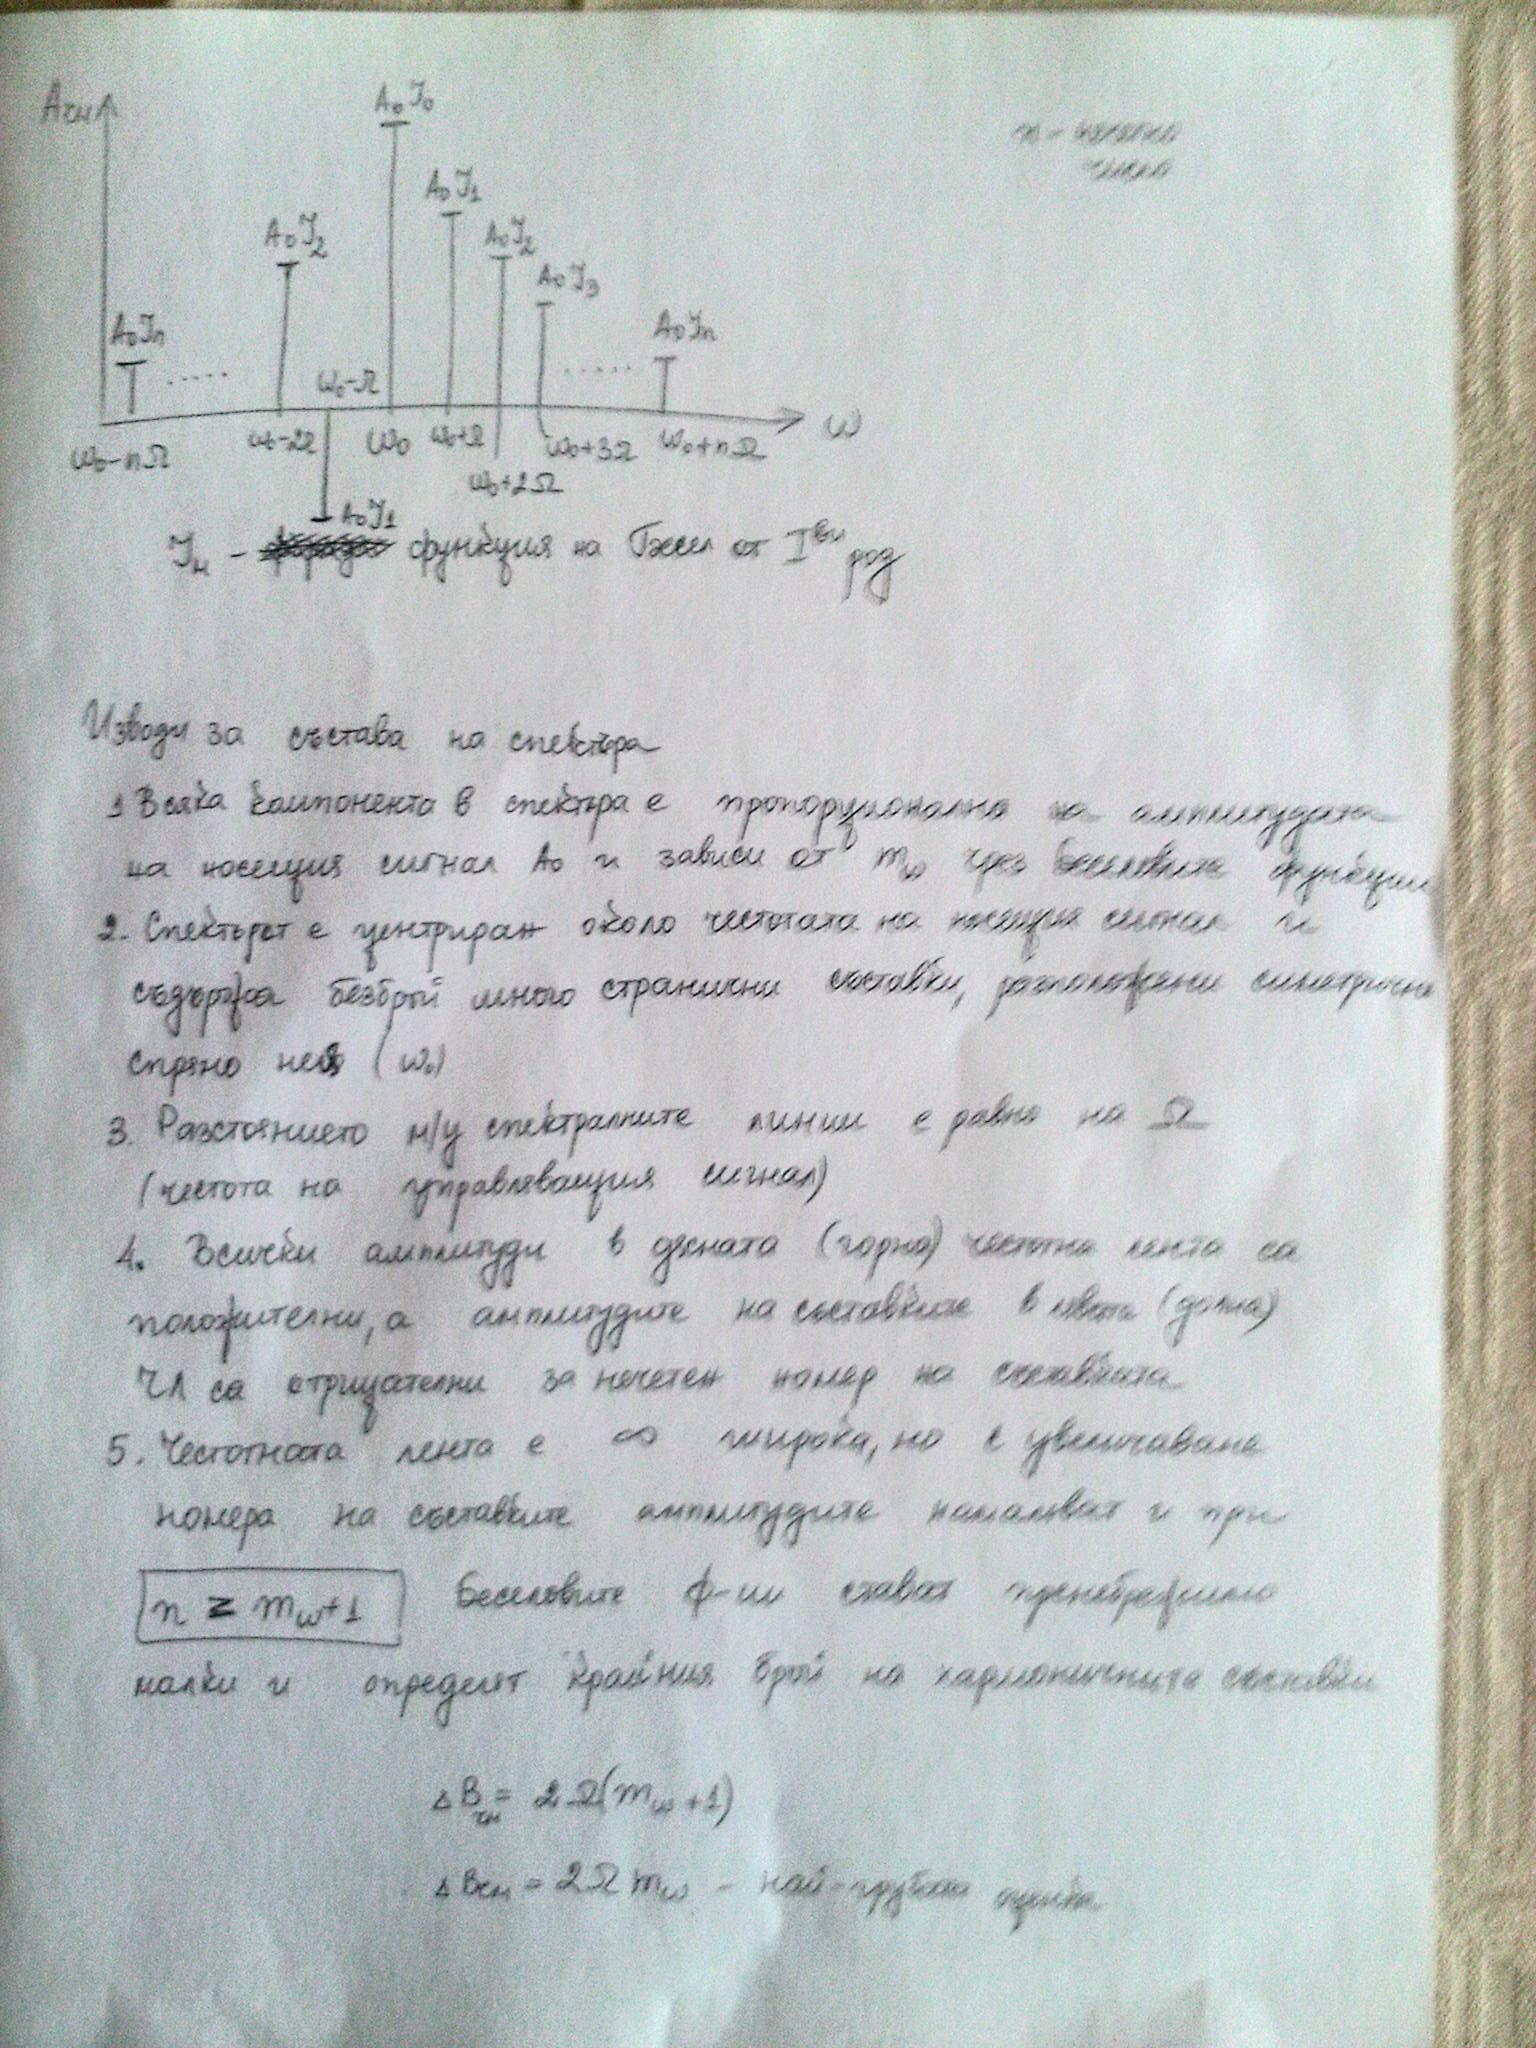 Aчм
A₀J₀
n - нечетно
число
A₀J₁
A₀J₂
A₀J₂
A₀J₃
A₀Jn
A₀Jn
.....
.....
ω₀-Ω
ω₀-nΩ
ω₀-2Ω
ω₀
ω₀+Ω
ω₀+2Ω
ω₀+3Ω
ω₀+nΩ
ω
A₀J₁
Jн - функция на Бжсел от Iви род
Изводи за състава на спектъра
1 Всяка компонента в спектъра е пропорционална на амплитудата
на носещия сигнал A₀ и зависи от mω чрез беселовите функции
2. Спектърът е центриран около честотата на носещия сигнал и
съдържа безброй много странични съставки, разположени симетрично
спрямо нея (ω₀)
3. Разстоянието м/у спектралните линии е равно на Ω
(честота на управляващия сигнал)
4. Всички амплитуди в дясната (горна) честотна лента са
положителни, а амплитудите на съставките в лявата (долна)
ЧЛ са отрицателни за нечетен номер на съставката
5. Честотната лента е ∞ широка, но с увеличаване
номера на съставките амплитудите намаляват и при
n ≥ mω+1 Беселовите ф-ии стават пренебрежимо
малки и определят крайния брой на хармоничните съставки
ΔBчм = 2Ω(mω+1)
ΔBчм = 2Ωmω - най-грубата оценка